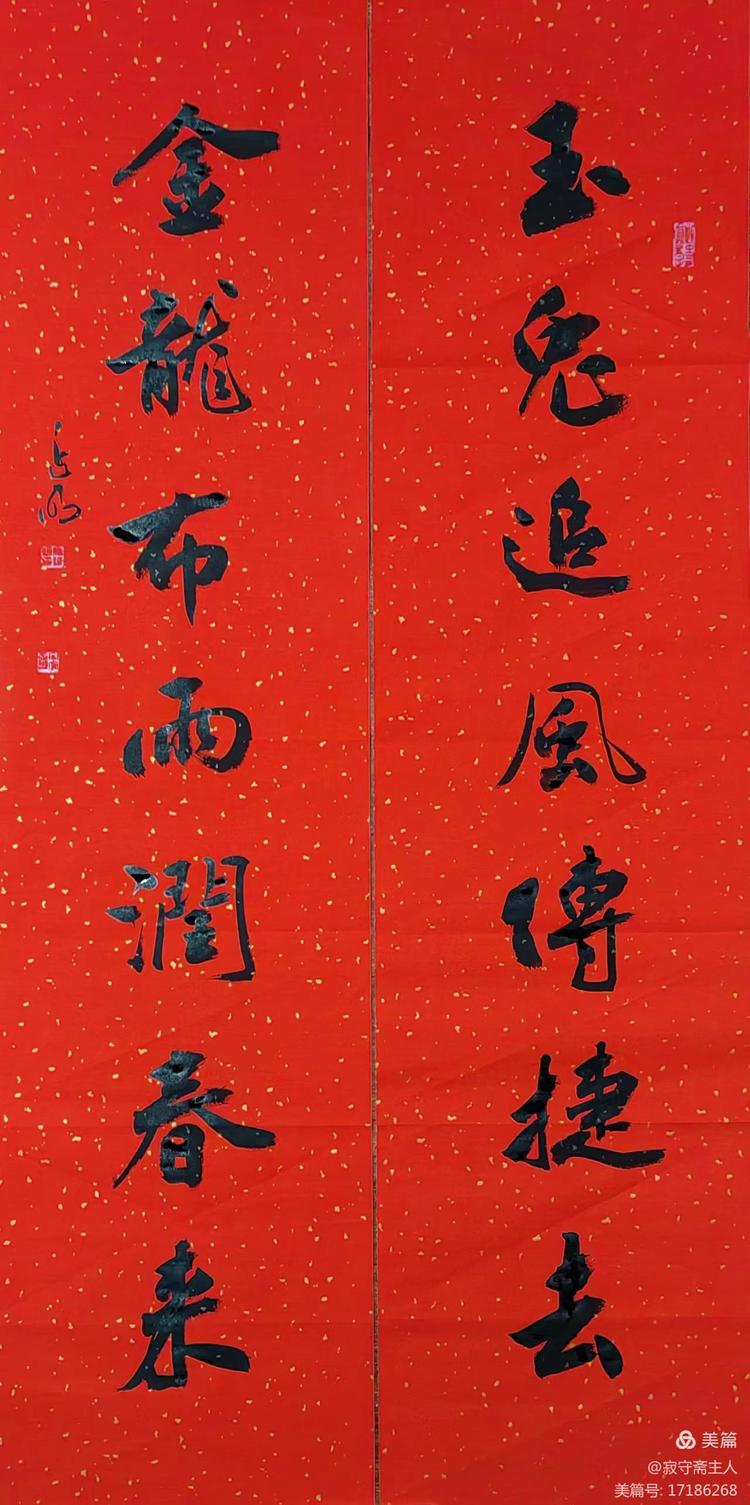 玉兔追風傳捷去
金龍布雨潤春来
美篇
@寂守斋主人
美篇号: 17186268